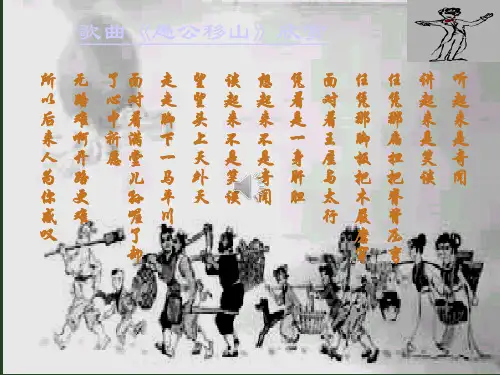 歌曲《愚公移山》歌词
听起来是奇闻
讲起来是笑谈
任凭那扁担把脊背压弯
任凭那脚板把木屐磨穿
面对着王屋与太行
凭着是一身肝胆
想起来不是奇闻
谈起来不是笑谈
望望头上天外天
走走脚下一马平川
面对着满堂儿孙喔了却
了心中祈愿
无路难啊开路更难
所以后来人为你感叹